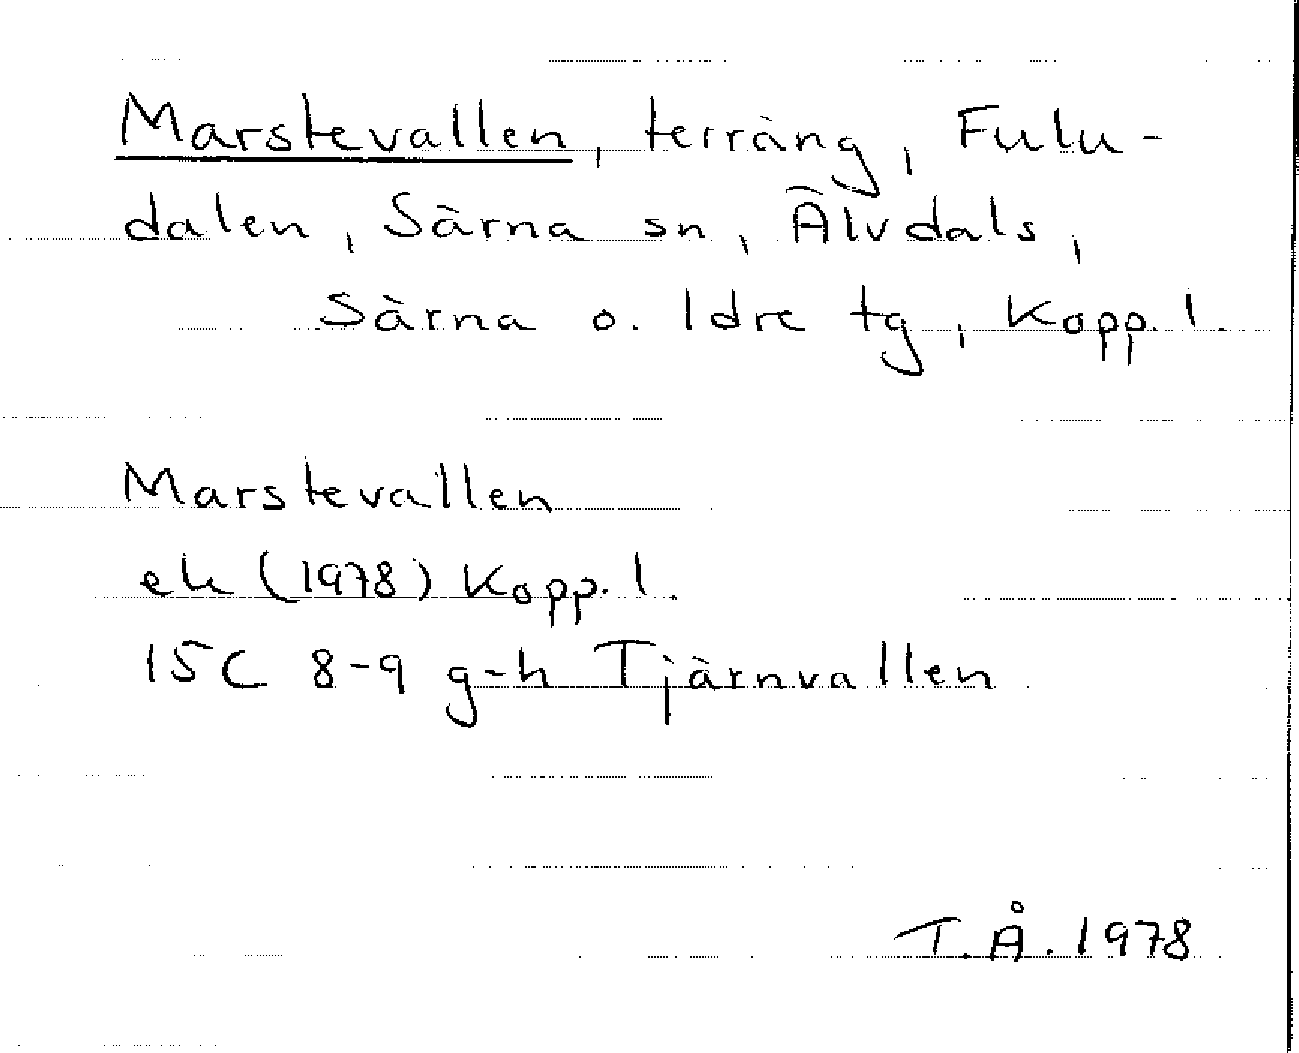 Marstevallen, terräng, Fulu-
dalen, Särna sn, Älvdals,
Särna o. Idre tg, Kopp. l.
Marstevallen
ek (1978) Kopp. l.
15C 8-9 g-h Tjärnvallen
T.Å. 1978